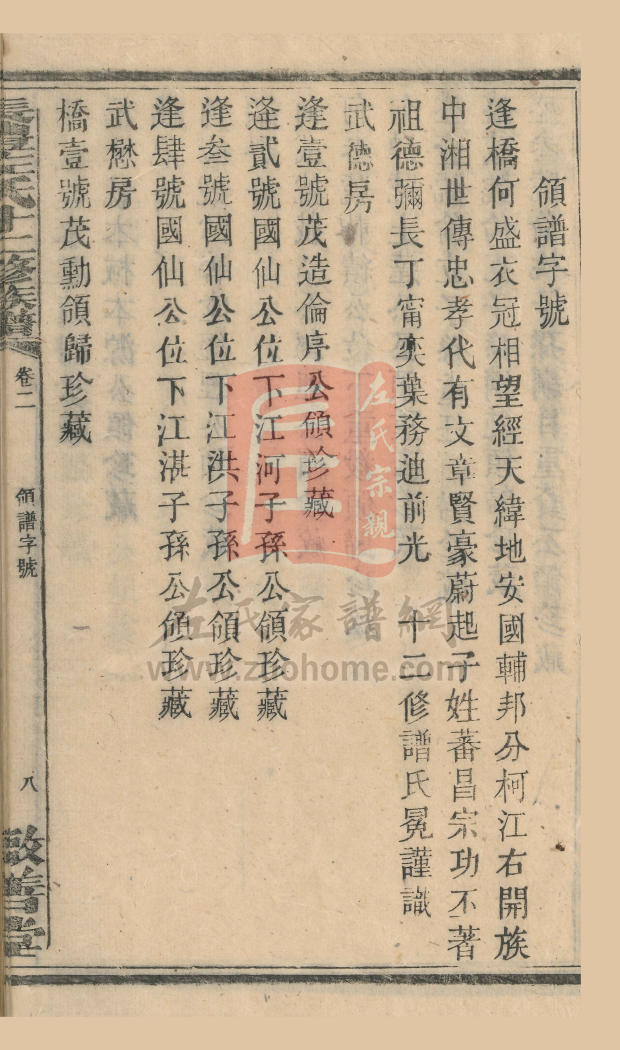 領譜字號
逢橋何盛衣冠相望經天緯地安國輔邦分柯江右開族
中湘世傳忠孝代有文章賢豪蔚起子姓蕃昌宗功丕著
祖德彌長丁甯奕葉務迪前光 十二修譜氏冕謹識
武德房
逢壹號茂造倫序公領珍藏
逢貳號國仙公位下江河子孫公領珍藏
逢叁號國仙公位下江洪子孫公領珍藏
逢肆號國仙公位下江湛子孫公領珍藏
武懋房
橋壹號茂勳領歸珍藏
氏十二修族譜
卷二
領譜字號
八
敬善堂
左氏宗親
左氏家譜網
www.zuohome.com